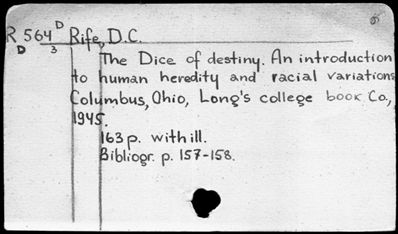 R 564 D Rife, D.C.
D 3
The Dice of destiny. An introduction
to human heredity and racial variations
Columbus, Ohio, Long's college book Co.,
1945.
163 p. with ill.
Bibliogr. p. 157-158.